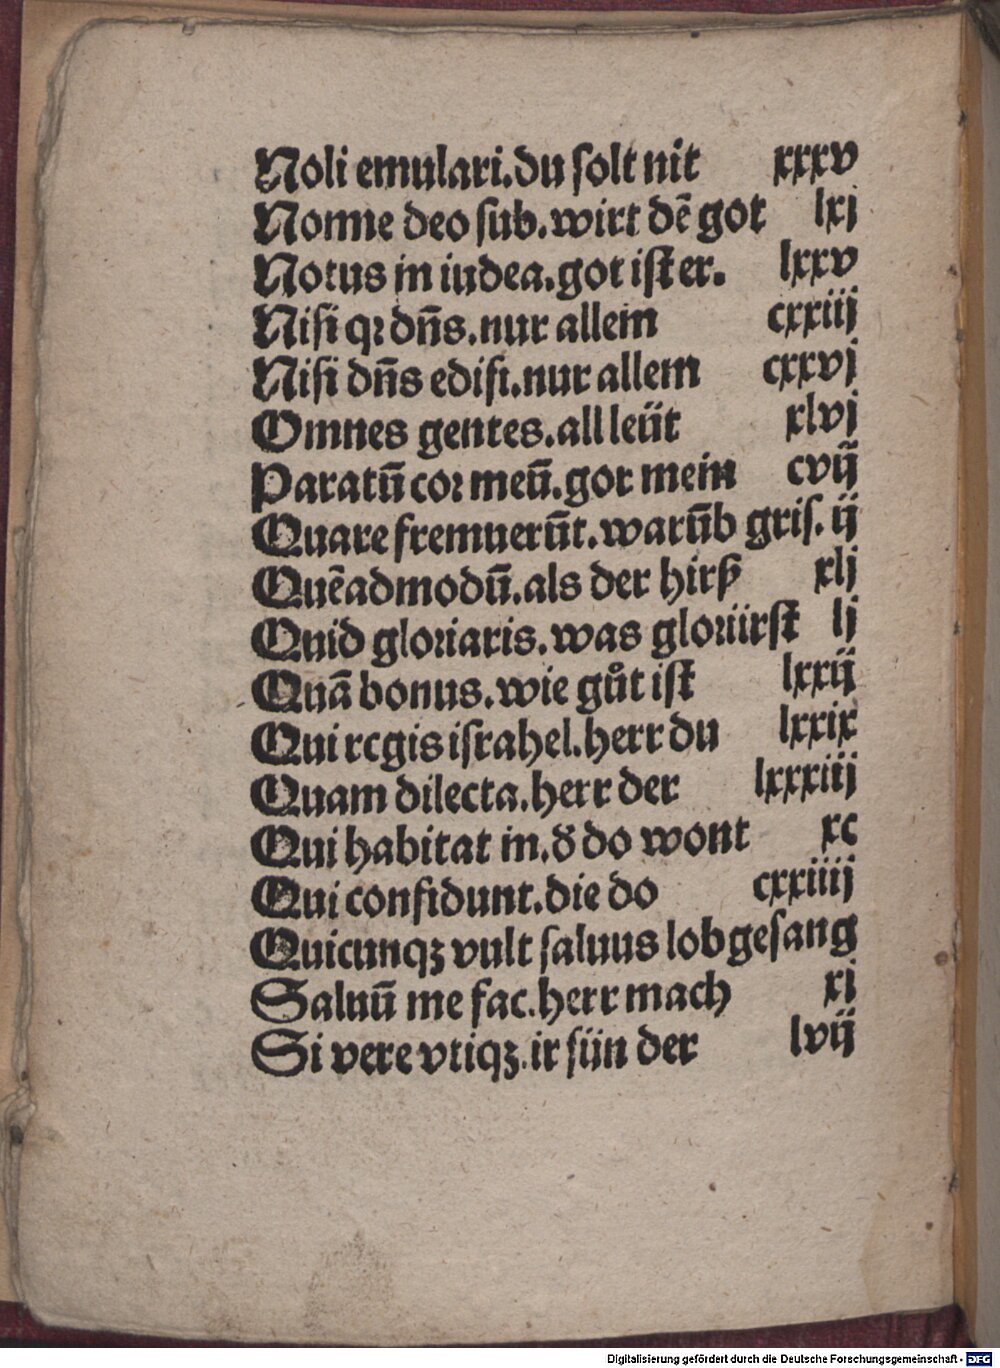 Noli emulari.du ſolt nit xxxv
Nonne deo ſub.wirt dē got lxj
Notus in iudea.got iſt er. lxxv
Niſi qꝛ dn̄s.nur allein cxxiij
Niſi dn̄s edifi.nur allein cxxvj
Omnes gentes.all leüt xlvj
Paratū coꝛ meū.got mein cvij
Quare fremuerūt.warūb griſ. ij
Quēadmodū.als der hirß xlj
Quid gloꝛiaris.was gloꝛiirſt lj
Quā bonus.wie gůt iſt lxxij
Qui regis iſrahel.herr du lxxix
Quam dilecta.herr der lxxxiij
Qui habitat in.ð do wont xc
Qui confidunt.die do cxxiiij
Quicunqꝫ vult ſaluus lobgeſang
Saluū me fac.herr mach xj
Si vere vtiqꝫ.ir ſün der lvij
Digitalisierung gefördert durch die Deutsche Forschungsgemeinschaft - DFG